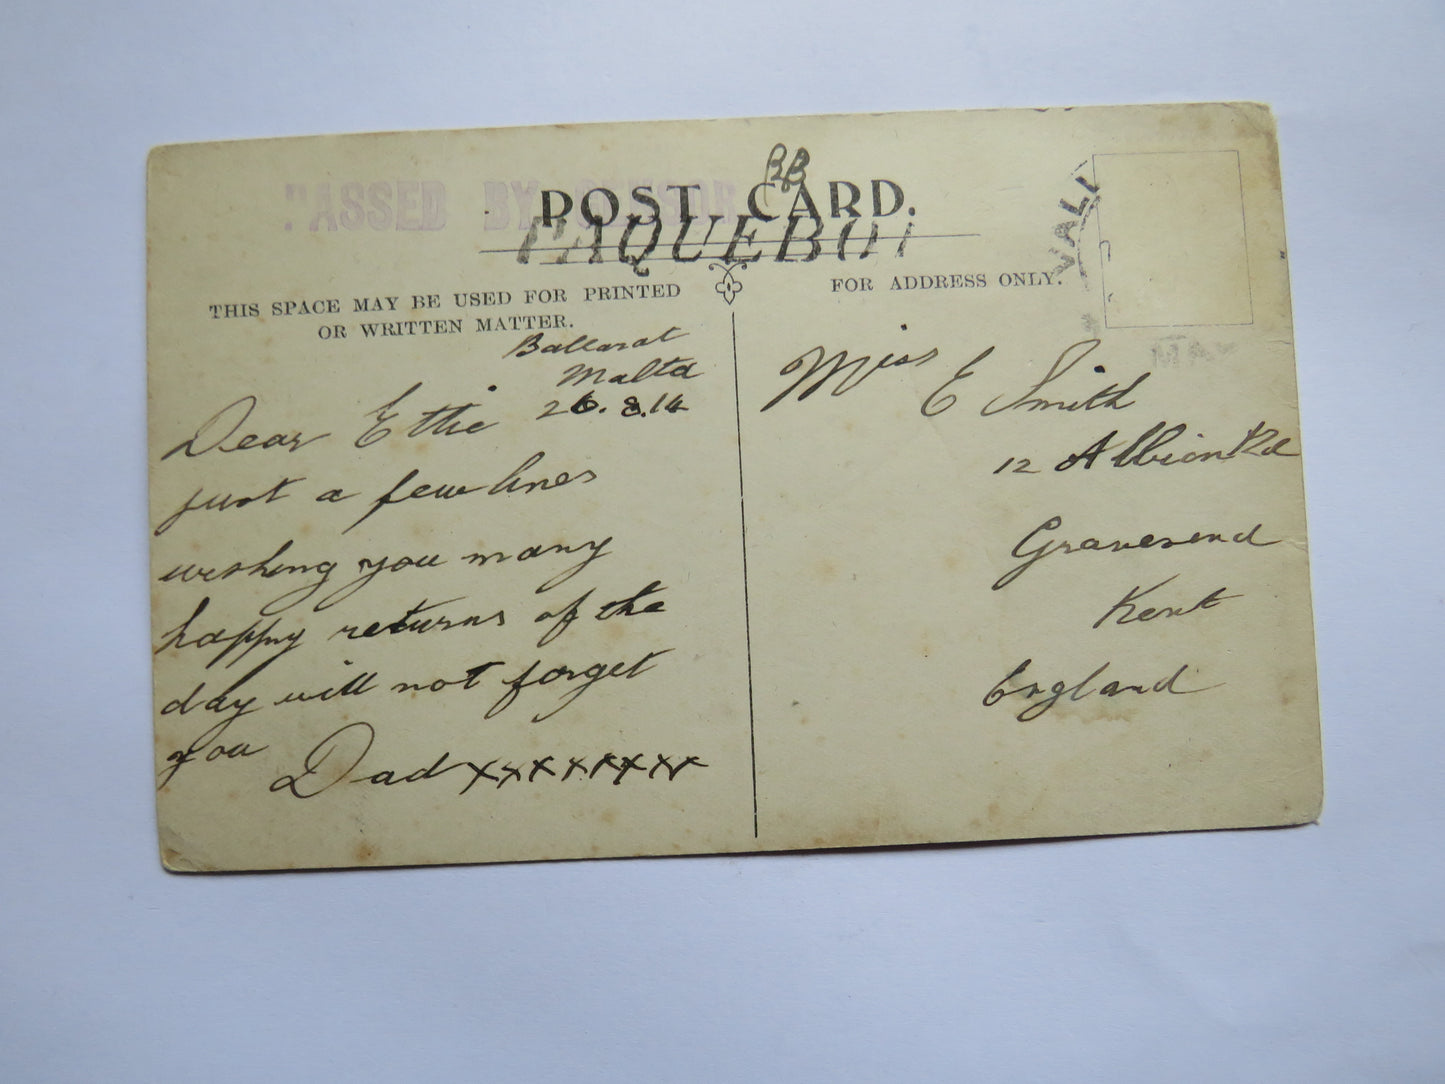 PASSED BY CENSOR
BB
POST CARD.
PAQUEBOT
VALL
THIS SPACE MAY BE USED FOR PRINTED
OR WRITTEN MATTER.
FOR ADDRESS ONLY.
Ballarat
Malta
26.8.16
Dear Ettie
just a few lines
wishing you many
happy returns of the
day will not forget
you
Dad xxxxxxxx
Miss E Smith
12 Albion Rd
Gravesend
Kent
England